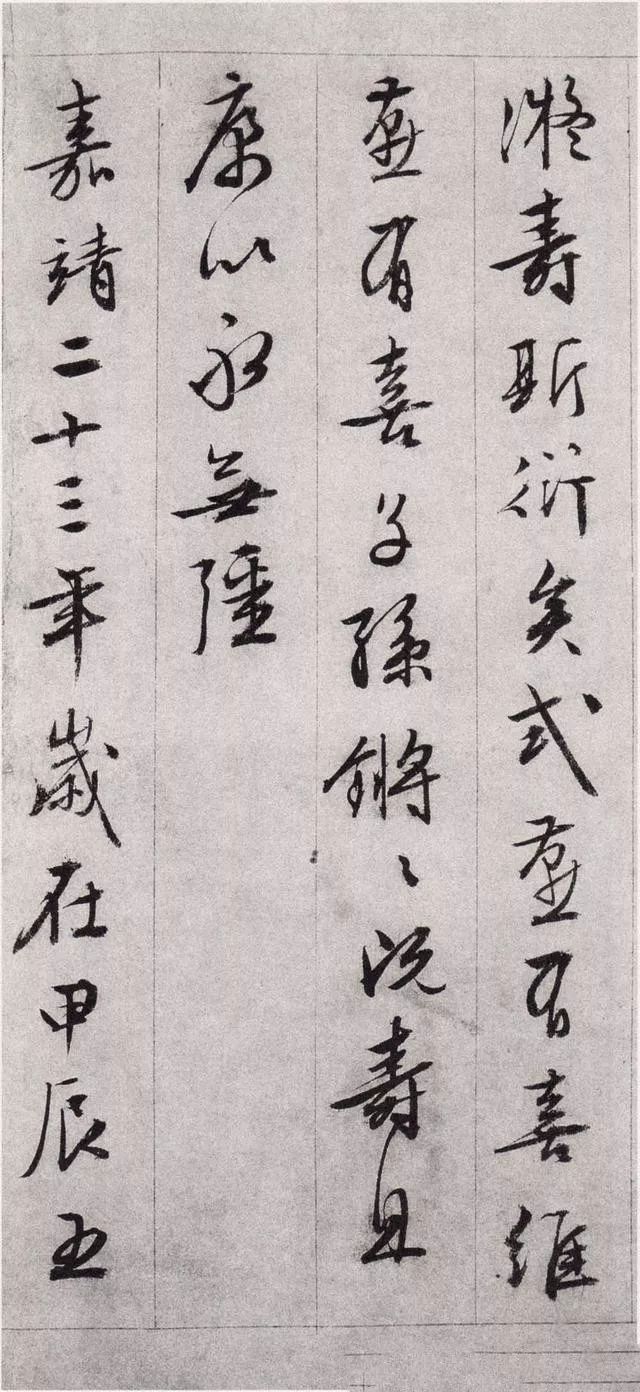 凝壽斯衍矣式燕有喜維
燕有喜子孫鏘〻既壽且
康以永無疆
嘉靖二十三年歲在甲辰五